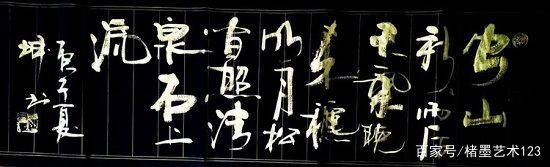 空山
新雨后
天氣晚
来秋
明月松
间照清
泉石上
流
庚子夏
百家号/楮墨艺术123